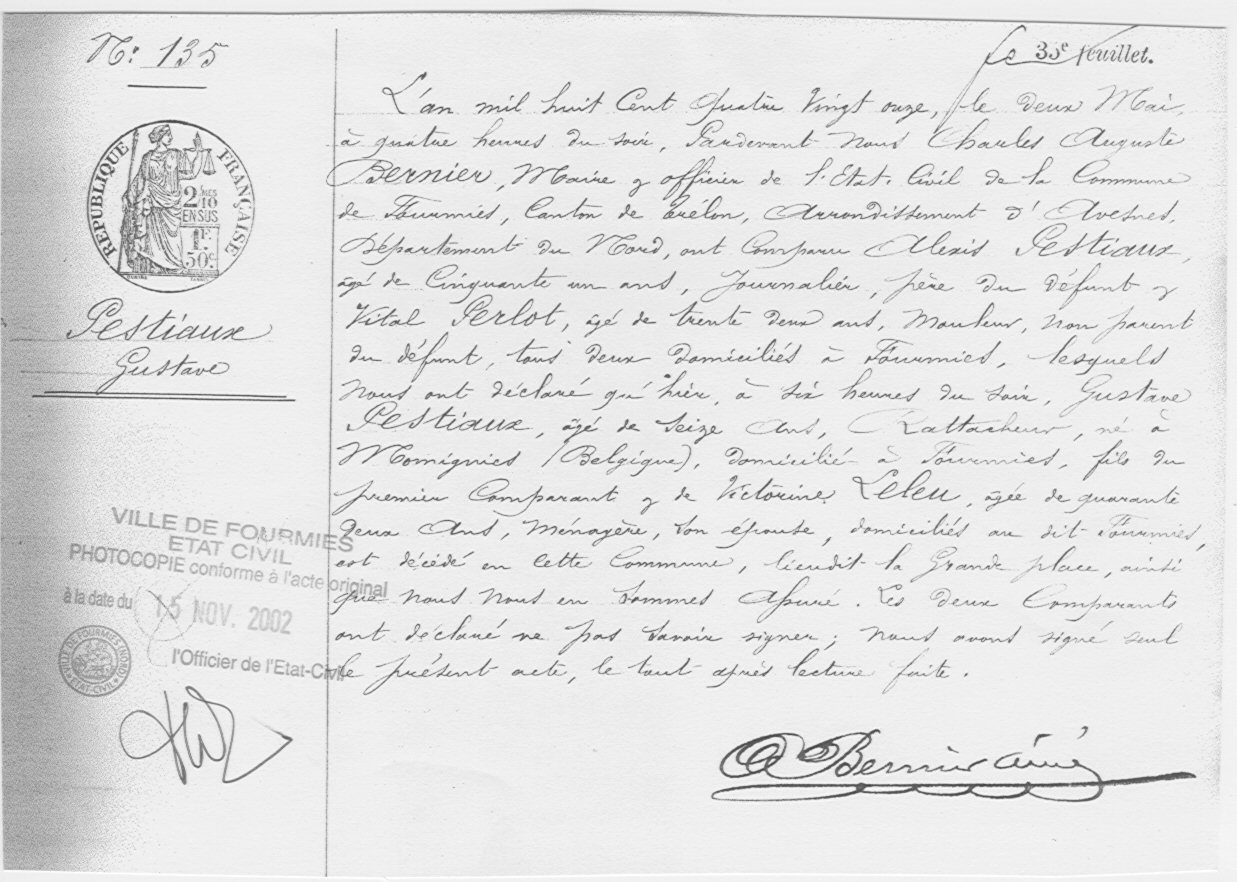 N°: 135
35e feuillet.
RÉPUBLIQUE FRANÇAISE
2/10 EN SUS
1F.
50c.
Pestiaux
Gustave
L'an mil huit Cent Quatre Vingt onze, le deux Mai,
à quatre heures du soir, Pardevant Nous Charles Auguste
Bernier, Maire & officier de l'Etat-Civil de la Commune
de Fourmies, Canton de Trélon, Arrondissement d'Avesnes,
Département du Nord, ont Comparu Alexis Pestiaux,
âgé de Cinquante un ans, Journalier, père du défunt &
Vital Perlot, âgé de trente deux ans, Mouleur, non parent
du défunt, tous deux domiciliés à Fourmies, lesquels
Nous ont déclaré qu'hier, à six heures du soir, Gustave
Pestiaux, âgé de Seize Ans, Rattacheur, né à
Momignies (Belgique), domicilié à Fourmies, fils du
premier Comparant & de Victorine Leleu, âgée de quarante
deux Ans, Ménagère, son épouse, domiciliés au dit Fourmies,
est décédé en cette Commune, lieudit la Grande place, ainsi
que nous nous en sommes assuré. Les deux Comparants
ont déclaré ne pas savoir signer; nous avons signé seul
le présent acte, le tout après lecture faite.
A Bernier ainé
VILLE DE FOURMIES
ETAT CIVIL
PHOTOCOPIE conforme à l'acte original
à la date du 15 NOV. 2002
l'Officier de l'Etat-Civil
VILLE DE FOURMIES (NORD)
ETAT-CIVIL